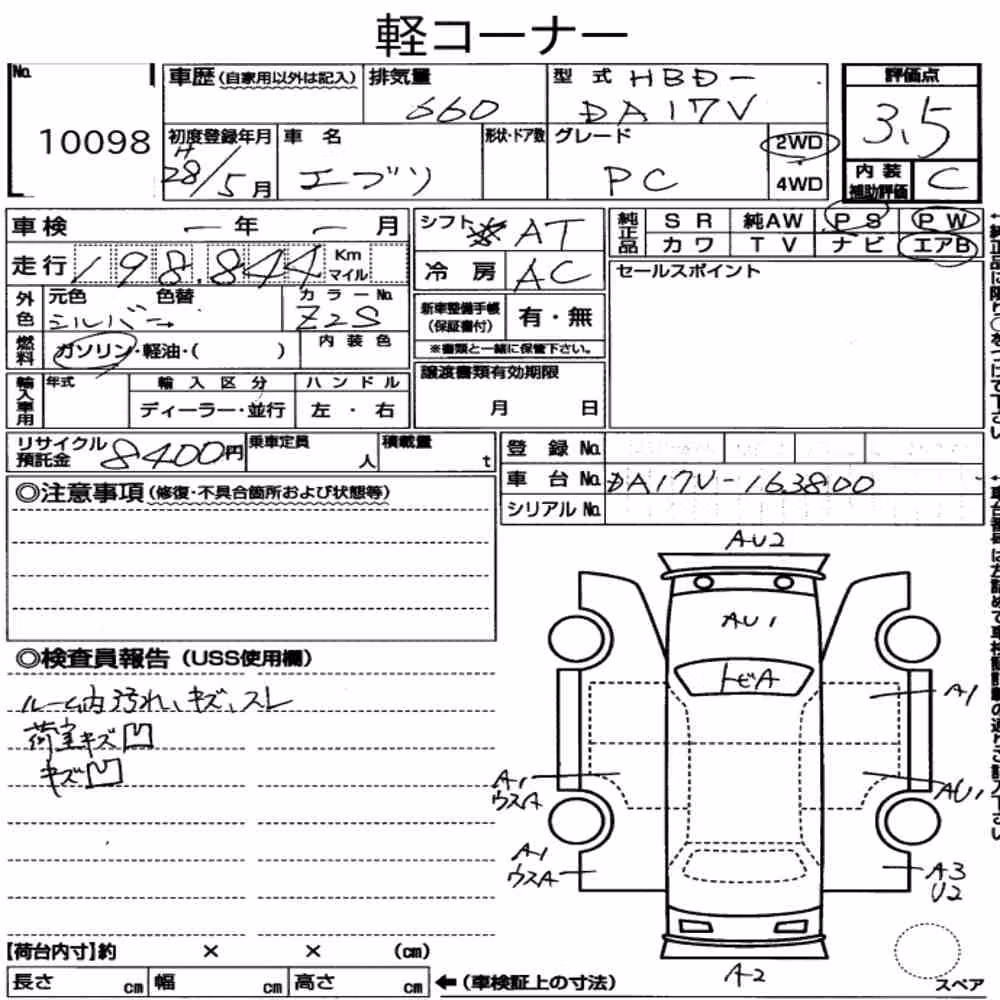 軽コーナー
No. 10098
車歴(自家用以外は記入)
排気量 660
型式 HBD-
DA17V
評価点 3.5
初度登録年月 H28/5月
車名 エブリ
形状・ドア数
グレード PC
2WD
4WD
内装補助評価 C
車検 ー年 ー月
走行 198,844 Km マイル
シフト AT
冷房 AC
純正品 SR 純AW PS PW
カワ TV ナビ エアB
セールスポイント
外色 元色 色替 シルバー
カラーNo. Z2S
新車整備手帳(保証書付) 有・無
※書類と一緒に保管下さい。
燃料 ガソリン・軽油・( )
内装色
譲渡書類有効期限
月 日
輸入車用 年式 輸入区分 ハンドル
ディーラー・並行 左・右
リサイクル預託金 8400円
乗車定員 人
積載量 t
登録No.
車台No. DA17V-163800
シリアルNo.
◎注意事項(修復・不具合箇所および状態等)
◎検査員報告(USS使用欄)
ルーム内汚れ、キズ、スレ
荷室キズ凹
キズ凹
AU2
AU1
トビA
A1
A1
ウスA
AU1
A1
ウスA
A3
U2
A2
スペア
【荷台内寸】約 × × (cm)
長さ cm 幅 cm 高さ cm ←(車検証上の寸法)